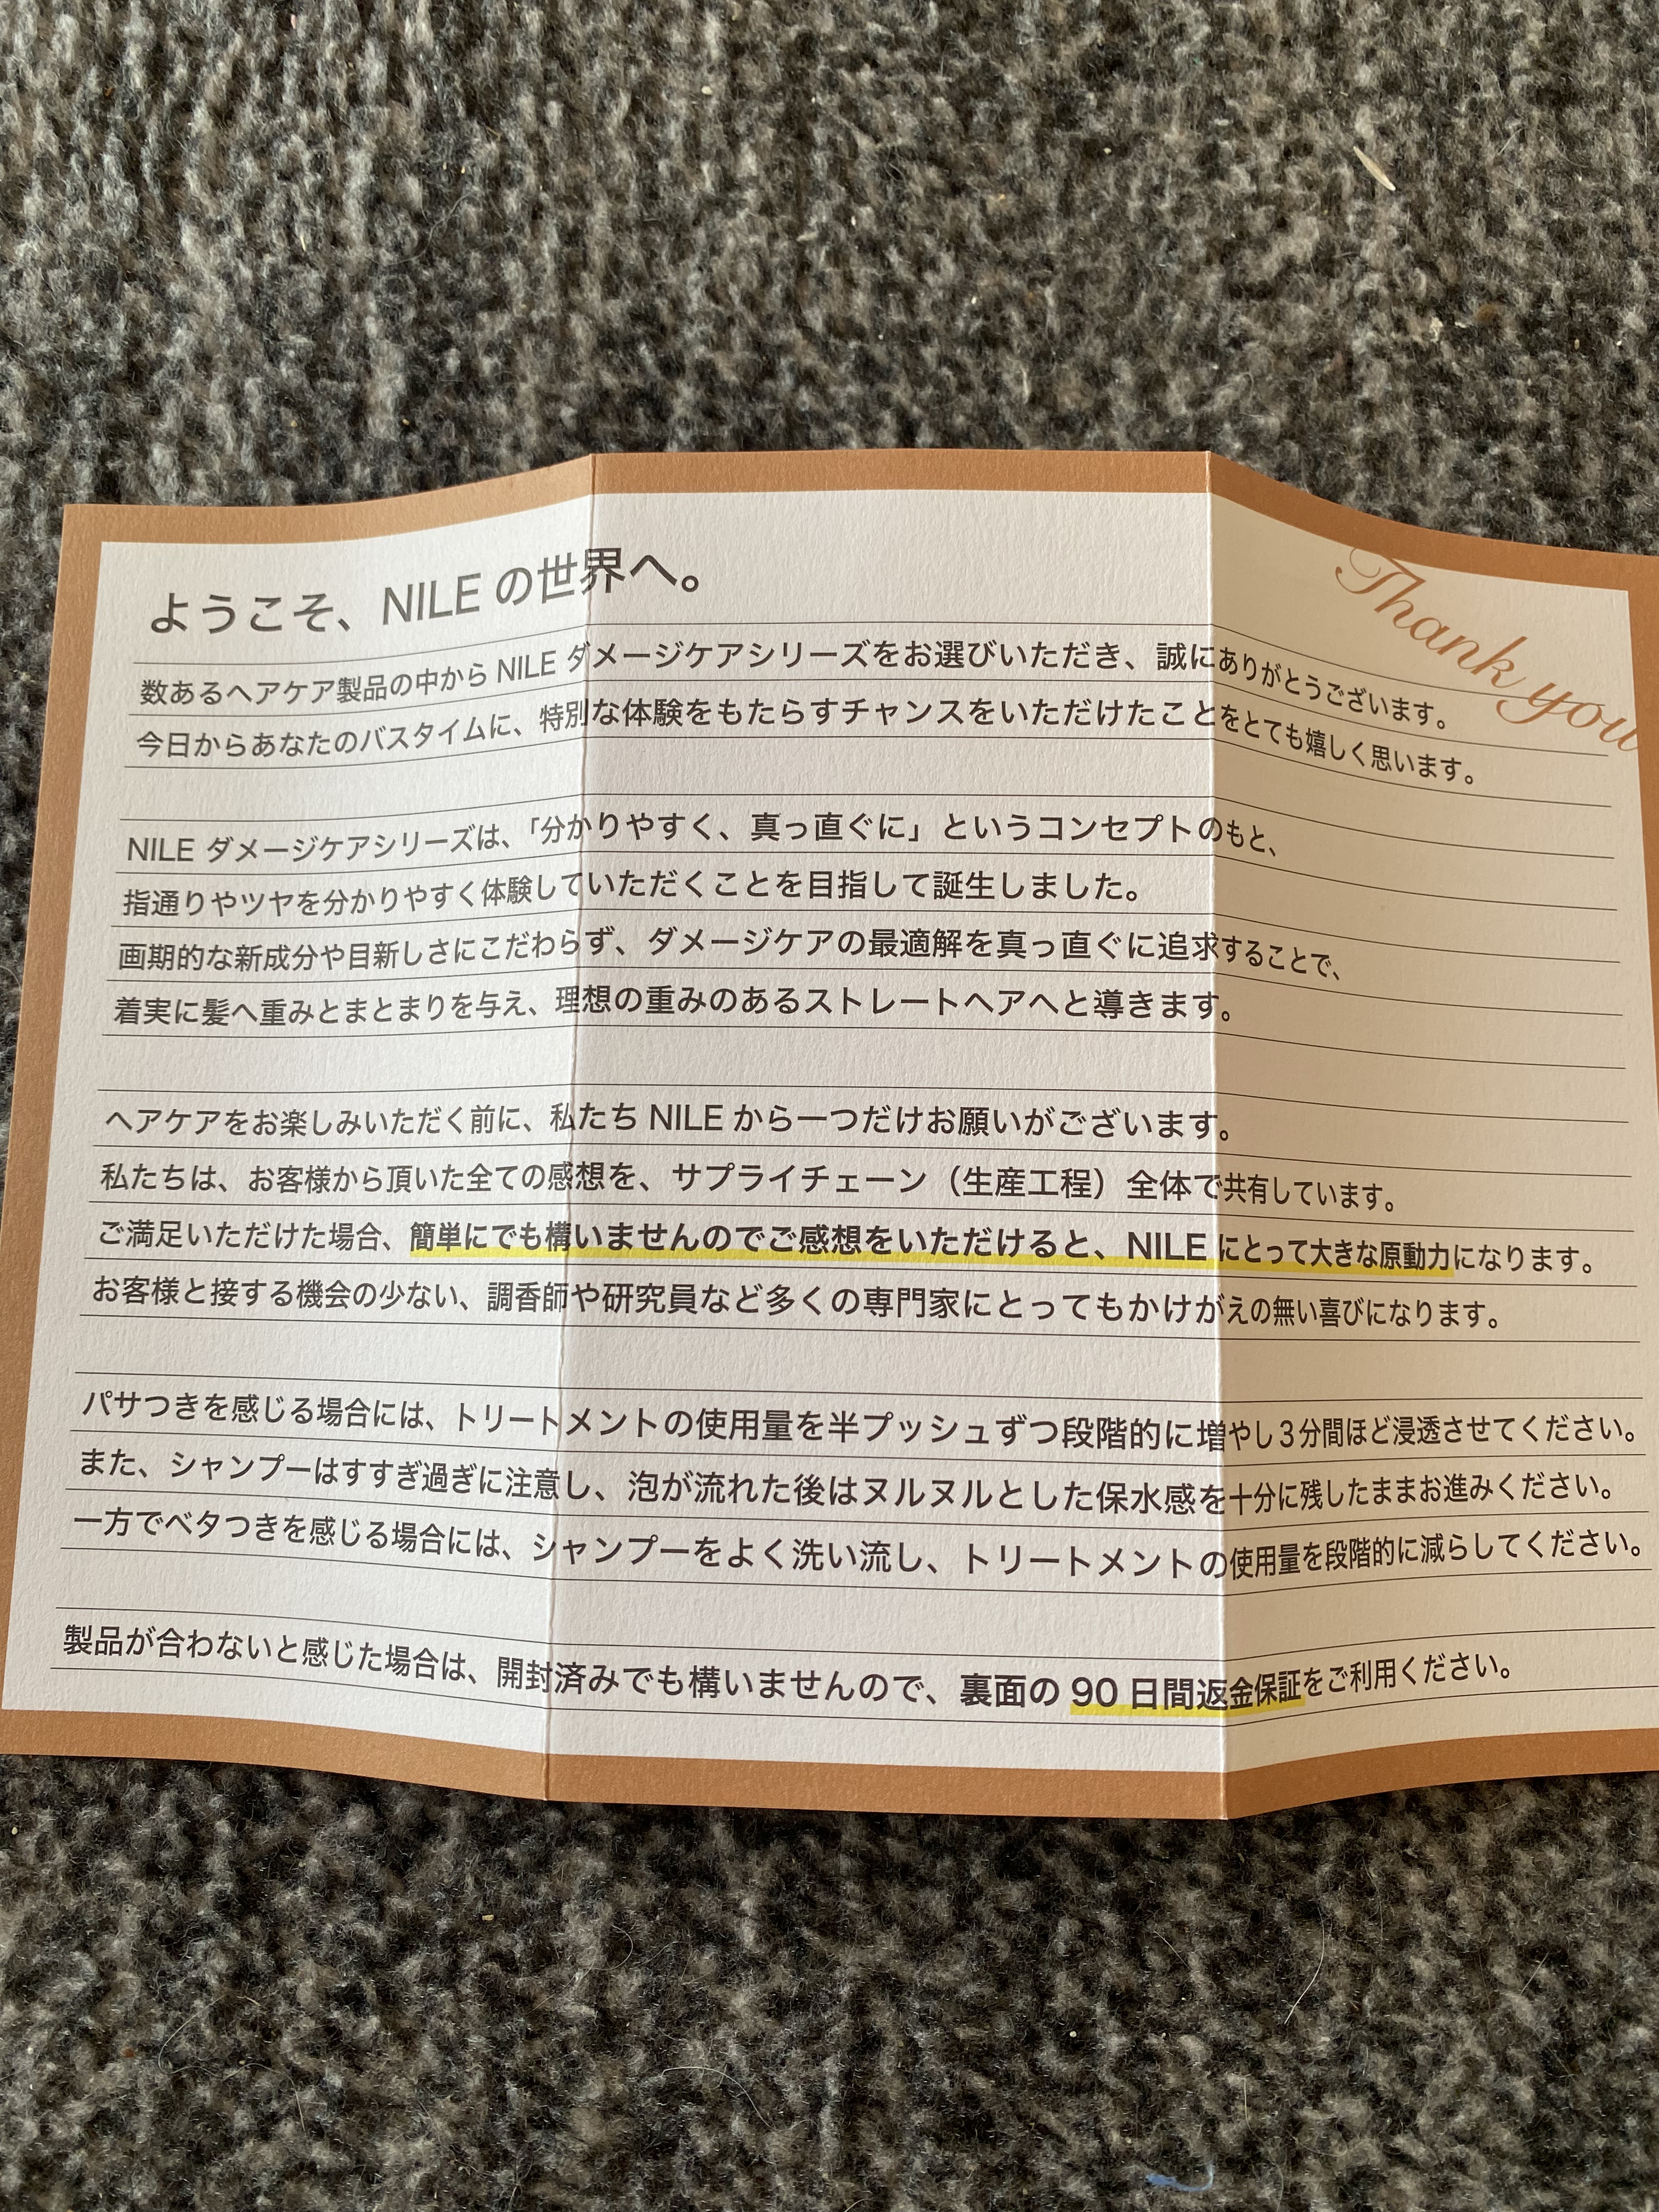 ようこそ、NILE の世界へ。
Thank you
数あるヘアケア製品の中から NILE ダメージケアシリーズをお選びいただき、誠にありがとうございます。
今日からあなたのバスタイムに、特別な体験をもたらすチャンスをいただけたことをとても嬉しく思います。
NILE ダメージケアシリーズは、「分かりやすく、真っ直ぐに」というコンセプトのもと、
指通りやツヤを分かりやすく体験していただくことを目指して誕生しました。
画期的な新成分や目新しさにこだわらず、ダメージケアの最適解を真っ直ぐに追求することで、
着実に髪へ重みとまとまりを与え、理想の重みのあるストレートヘアへと導きます。
ヘアケアをお楽しみいただく前に、私たち NILE から一つだけお願いがございます。
私たちは、お客様から頂いた全ての感想を、サプライチェーン（生産工程）全体で共有しています。
ご満足いただけた場合、簡単にでも構いませんのでご感想をいただけると、NILE にとって大きな原動力になります。
お客様と接する機会の少ない、調香師や研究員など多くの専門家にとってもかけがえの無い喜びになります。
パサつきを感じる場合には、トリートメントの使用量を半プッシュずつ段階的に増やし３分間ほど浸透させてください。
また、シャンプーはすすぎ過ぎに注意し、泡が流れた後はヌルヌルとした保水感を十分に残したままお進みください。
一方でベタつきを感じる場合には、シャンプーをよく洗い流し、トリートメントの使用量を段階的に減らしてください。
製品が合わないと感じた場合は、開封済みでも構いませんので、裏面の 90 日間返金保証をご利用ください。